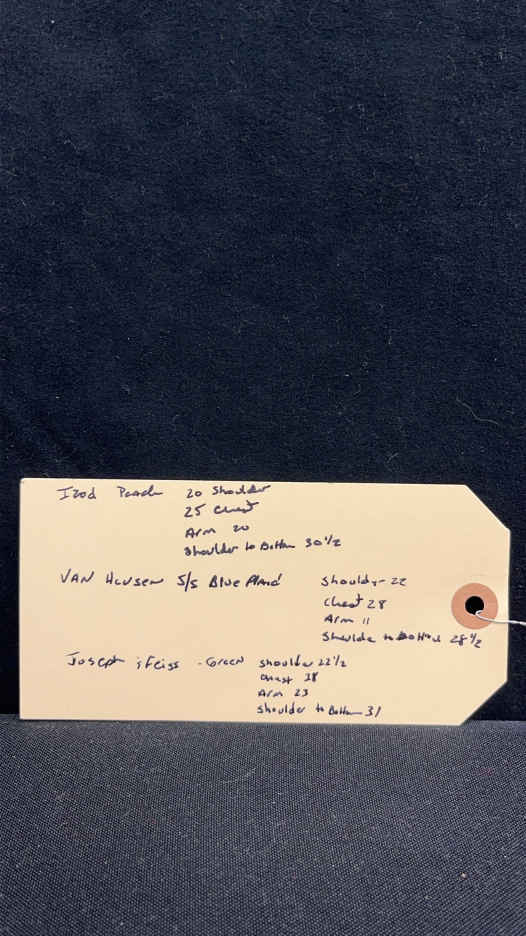 Izod Peach 20 Shoulder
25 Chest
Arm 20
Shoulder to Bottom 30 1/2
VAN Heusen S/S Blue Plaid Shoulder - 22
Chest 28
Arm 11
Shoulder to Bottom 28 1/2
Joseph & Feiss - Green Shoulder 22 1/2
Chest 28
Arm 23
Shoulder to Bottom 31